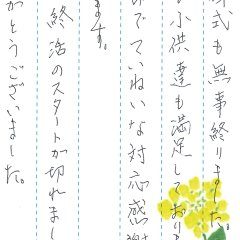 式も無事終りました。
小供達も満足しており
でていねいな対応感謝
ます。
終活のスタートが切れまし
がとうございました。